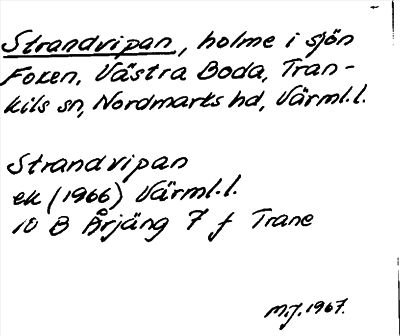 Strandvipan, holme i sjön
Foxen, Västra Boda, Tran-
kils sn, Nordmarks hd, Värml.l.
Strandvipan
ek (1966) Värml.l.
10 B Årjäng 7 f Trane
M.J. 1967.